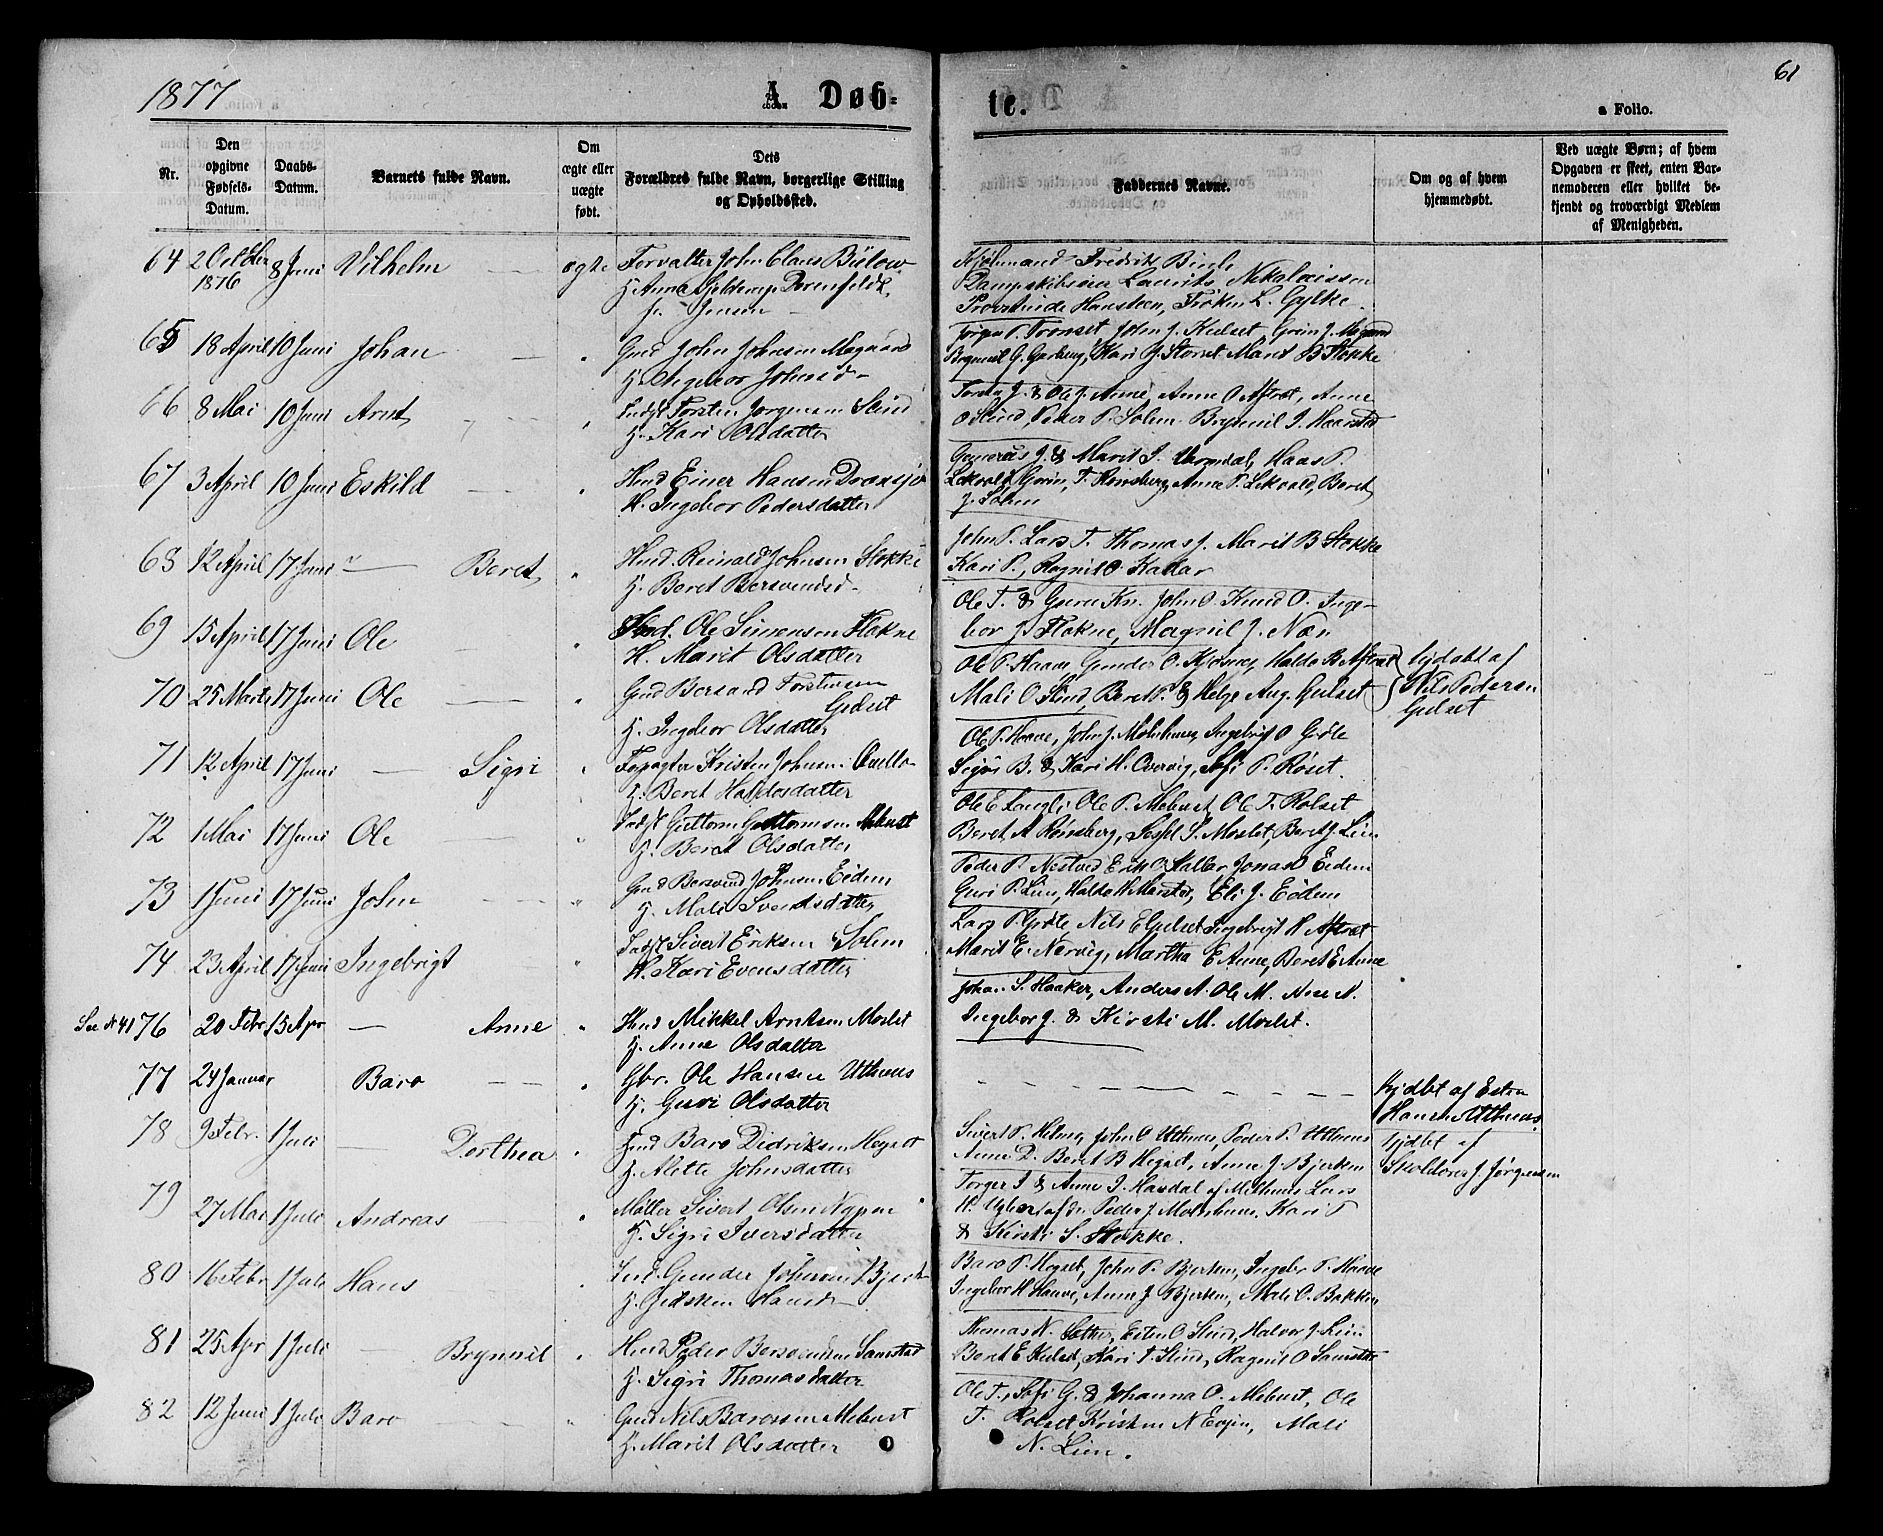 1877
A. Døb=
te.
61
a Folio.
Nr.
Den opgivne Fødsels-Datum.
Daabs-Datum.
Barnets fulde Navn.
Om ægte eller uægte født.
Dets Forældres fulde Navn, borgerlige Stilling og Opholdssted.
Faddernes Navne.
Om og af hvem hjemmedøbt.
Ved uægte Børn; af hvem Opgaven er skeet, enten Barnemoderen eller hvilket bekjendt og troværdigt Medlem af Menigheden.
64 2 Octbr 1876 8 Juni Vilhelm ægte Forvalter John Claus Bülow
H. Anna Gjelderup Dorenfeldt
f. Jensen
Kjøbmand Fredrik Birch
Laurits Nikolaissen
Hansteen, Frøken L. Gylke
65 18 April 10 Juni Johan " Gmd John Johnsen Magaard
H. Ingebor Johnsd
Jørgen P. Tronset, John J. Kulset, Guri J. Magaard
Brynnil G. Garberg, Kari J. Storset Marit B Stokke
66 8 Mai 10 Juni Arnt " Indst Torsten Jørgensen Slind
H. Kari Olsdatter
Torsten J. & Ole J. Anne, Anne O Aftret, Anne
O Slind, Peder P. Solem Brynnil J. Haarstad
67 3 April 10 Juni Eskild " Hmd Einer Hansen Dvasjø
H. Ingebor Pedersdatter
J. & Marit J. Uvmdal, Haas P.
Lekvold, Gurin, T. Rønsberg, Anne P. Lekvold, Beret
J. Solem
68 12 April 17 Juni — Beret " Hmd. Reinald Johnsen Stokke
H. Beret Bersvendsd
John P. Lars T. Thomas J. Marit B Stokke
Kari P., Ragnil O. Kallar
69 15 April 17 Juni Ole " Ole Simonsen Flakne
H. Marit Olsdatter
Ole T. & Guru Kn. John O. Knud O. Inge-
bor J. Flakne, Magnil J. Næs
70 25 Marts 17 Juni Ole " Gmd Bersvend Torstensen
Gulset
H. Ingebor Olsdatter
Ole P. Haave, Gunder O. Kjøsnes, Haldo B Aftret
Mali O Slind, Beret P. & Helge Aug. Gulset
hjdøbt af
Nils Pedersen
Gulset
71 12 April 17 Juni — Sigri " Forpagter Kristen Johnsen
H. Beret Haldosdatter
Ole P. Haave, John J. Molnhus, Ingebrigt O Grøte
Sigri B. & Kari H. Overvig, Sofi P. Røset
72 1 Mai 17 Juni Ole " Indst Guttorm Guttormsen Mebust
H. Beret Olsdatter
Ole E Langli Ole P. Mebust, Ole T. Rolset
Beret A Rønsberg, Sessel S. Moslet, Beret J Lien
73 1 Juni 17 Juni John " Gmd Bersvend Johnsen Eidem
H. Mali Svendsdatter
Peder P. Nestvod Erik O Kallar Jonas O Eidem
Guri P. Lien, Haldo H Marster, Eli J. Eidem
74 23 April 17 Juni Ingebrigt " Indst Sivert Eriksen Solem
H. Kari Evensdatter
Lars P. Grøte, Nils E Gulset Ingebrigt H. Aftret
Marit E. Nervig, Martha E Anne, Beret E Anne
See No 41 76 20 Febr 15 Apr — Anne " Hmd Mikkel Arntsen Moslet
H. Anne Olsdatter
Johan S. Haaker, Anders A. Ole M. N.
Ingebor J. & Kirsti M. Moslet.
77 24 Januar Baro " Gbr. Ole Hansen Uthuus
H. Guri Olsdatter
— — — — — —
hjdbt af Esten
Hansen Uthuus
78 9 Febr. 1 Juli — Dorthea " Hmd Baro Didriksen Hegset
H. Alette Johnsdatter
Sivert P. Helmo, John O Uthuus, Peder P. Uthuus
Anne D. Beret B Hegset, Anne J. Bjerken
hjdbt af
Skolelærer J. Jørgensen
79 27 Mai 1 Juli Andreas " Møller Sivert Olsen Nypan
H. Sigri Iversdatter
Torger I & Anne I. Havdal af Melhuus Lars
H. Ugler af do Peder J Molnhuus, Kari P
& Kirsti S. Stokke.
80 16 Febr 1 Juli Hans " Ind. Gunder Johnsen Bjerk
H. Gidsken Hansd
Baro P. Hegset, John P. Bjerken, Ingebr P. Haave
Ingebor H Haave, Anne J Bjerken, Mali O. Bakken
81 25 Apr 1 Juli — Brynnil " Hmd Peder Bersvendsen Samstad
H. Sigri Thomasdatter
Thomas N. Sæther, Esten O Slind, Halvor J. Lien
Beret E Kulset, Kari T. Slind, Ragnil O Samstad
82 12 Juni 1 Juli Baro " Gmd Nils Barosen Mebust
H. Marit Olsdatter
Ole T., Sofi G. & Johanna O. Mebust, Ole
T. Rolset Kristen N Evjen, Mali
N. Lien.